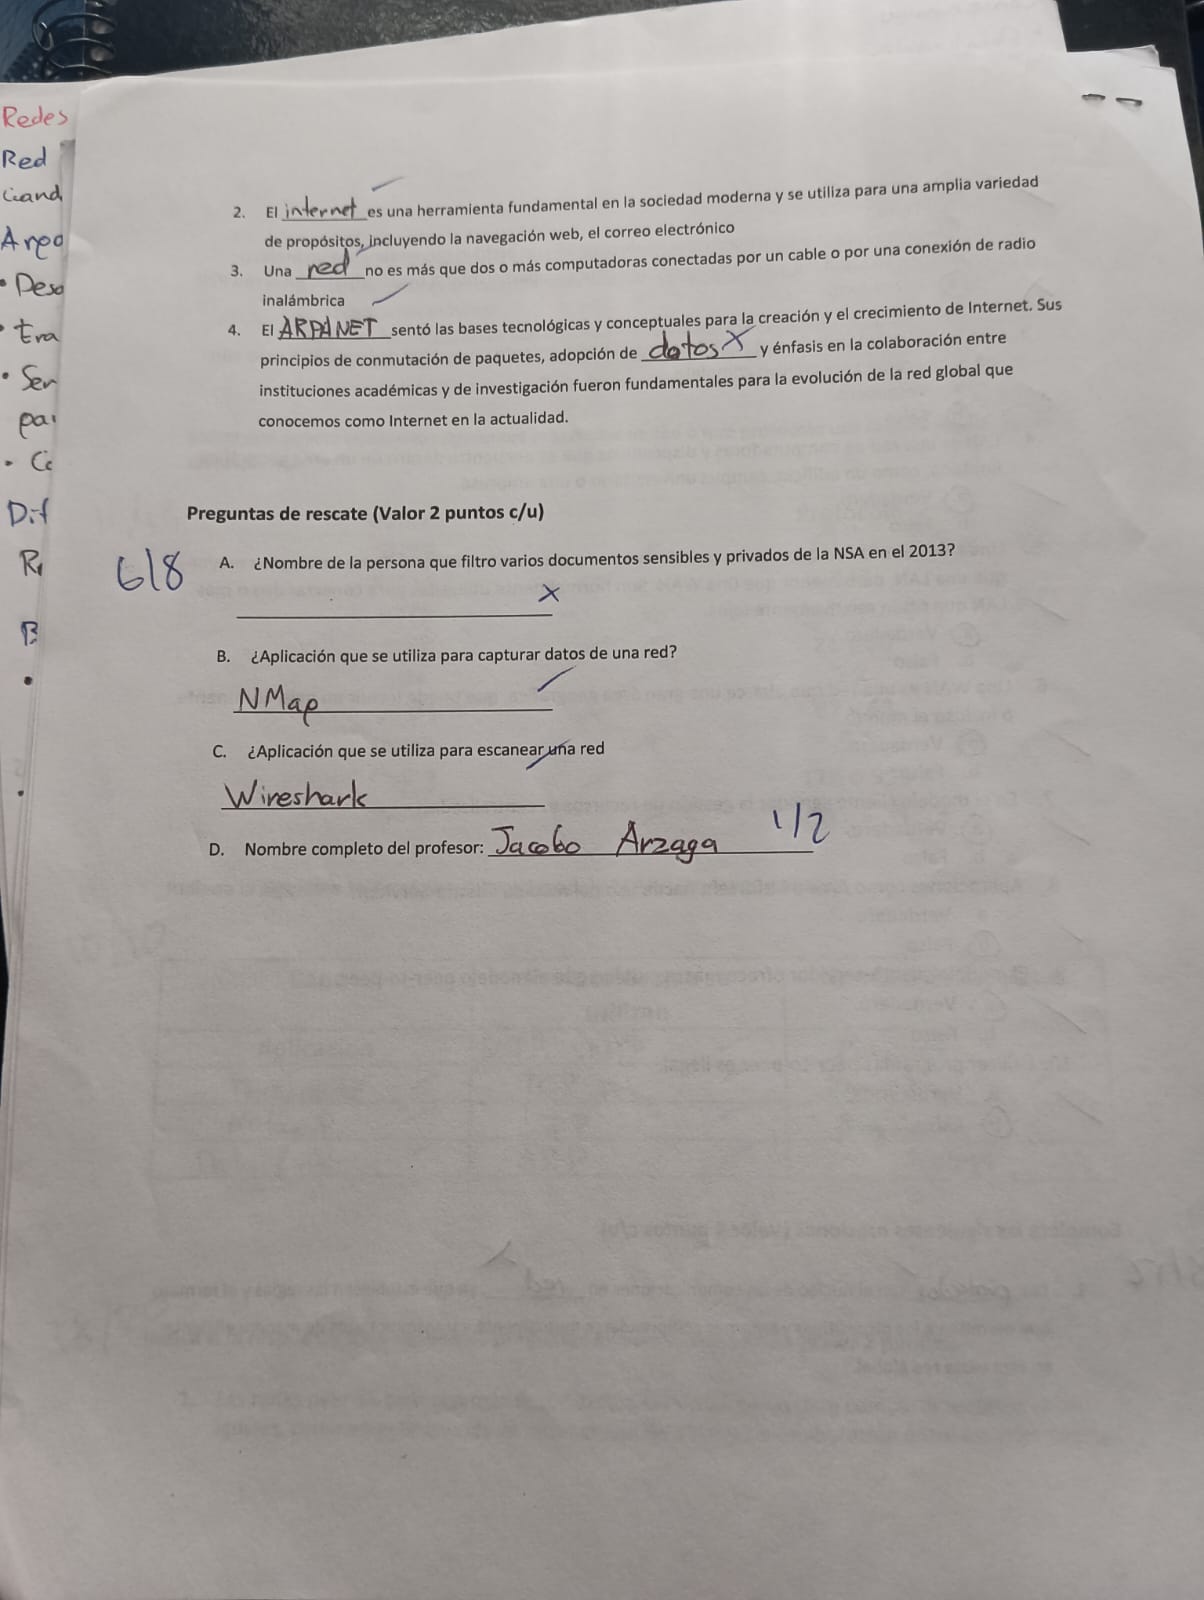 Redes
Red
Area
Era
Ser
Dif
2. El internet es una herramienta fundamental en la sociedad moderna y se utiliza para una amplia variedad
de propósitos, incluyendo la navegación web, el correo electrónico
3. Una red no es más que dos o más computadoras conectadas por un cable o por una conexión de radio
inalámbrica
4. El ARPANET sentó las bases tecnológicas y conceptuales para la creación y el crecimiento de Internet. Sus
principios de conmutación de paquetes, adopción de datos y énfasis en la colaboración entre
instituciones académicas y de investigación fueron fundamentales para la evolución de la red global que
conocemos como Internet en la actualidad.
Preguntas de rescate (Valor 2 puntos c/u)
6/8
A. ¿Nombre de la persona que filtro varios documentos sensibles y privados de la NSA en el 2013?
B. ¿Aplicación que se utiliza para capturar datos de una red?
NMap
C. ¿Aplicación que se utiliza para escanear una red
Wireshark
D. Nombre completo del profesor: Jacobo Arzaga 1/2